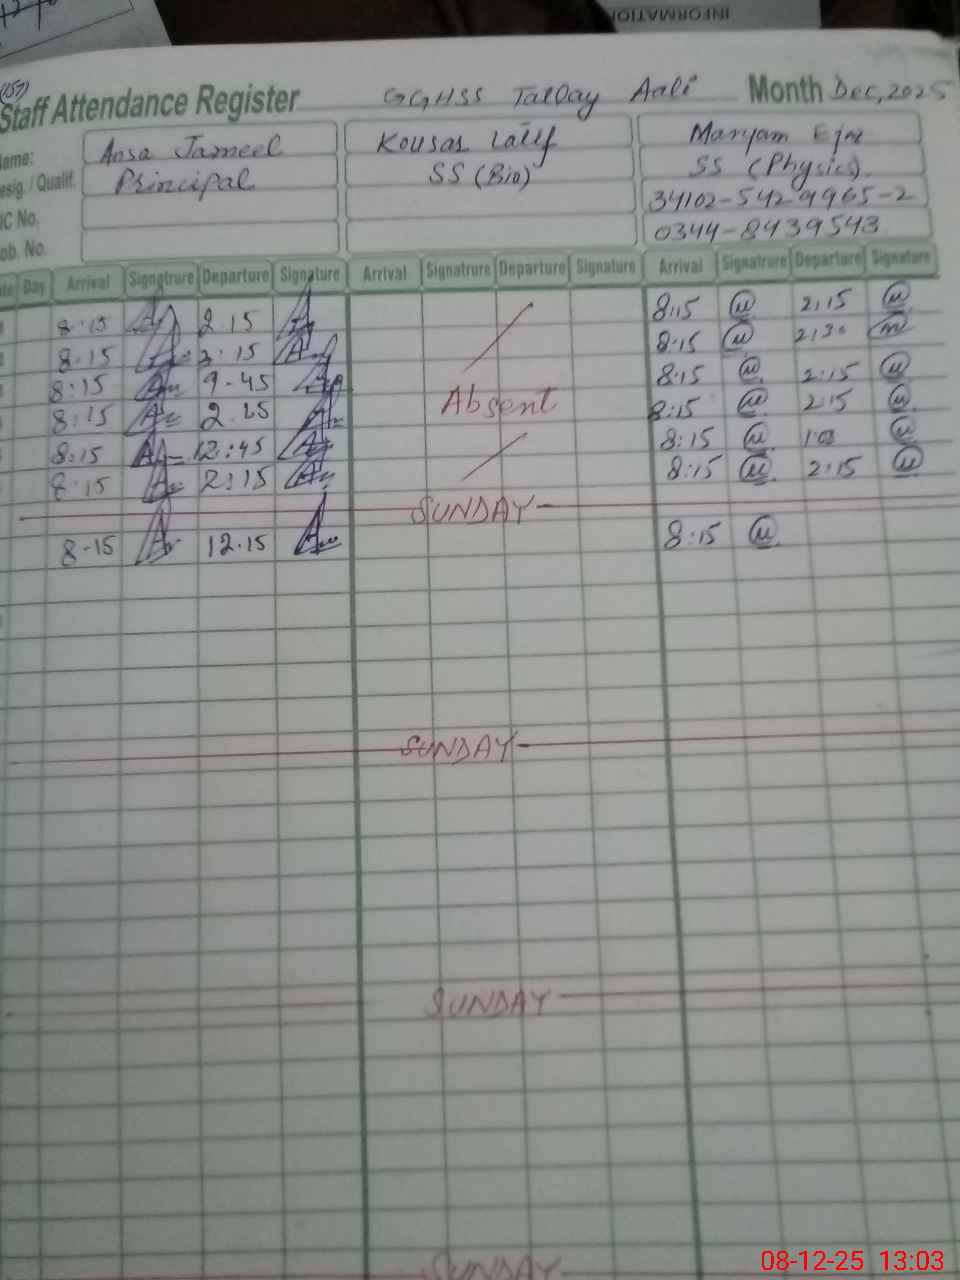 INFORMATION
(157)
Staff Attendance Register GGHSS Tatlay Aali Month Dec, 2025
ame: Ansa Jameel Kousar Latif Maryam Ejaz
esig. / Qualif. Principal SS (Bio) SS (Physics).
IC No. 34102-5429965-2
ob. No. 0344-8439543
te Day Arrival Signatrure Departure Signature Arrival Signatrure Departure Signature Arrival Signatrure Departure Signature
8:15 2.15 8:15 2:15
8.15 2:15 8:15 2:30
8:15 9-45 8:15 2:15
8:15 2.15 Absent 8:15 2:15
8:15 12:45 8:15
8:15 2:15 8:15 2:15
SUNDAY
8-15 12.15 8:15
SUNDAY
SUNDAY
SUNDAY
08-12-25 13:03